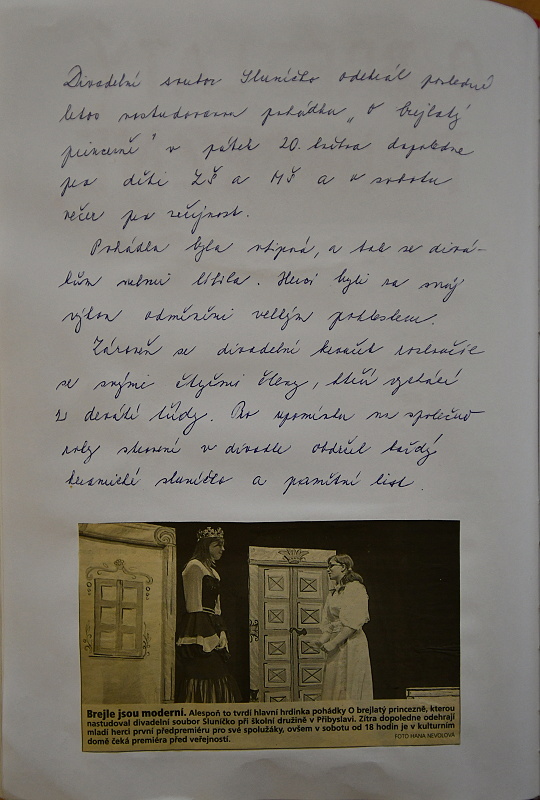 Divadelní soubor Sluníčko odehrál poslední
letos nastudovanou pohádku „O brejlatý
princezně" v pátek 20. května dopoledne
pro děti ZŠ a MŠ a v sobotu
večer pro veřejnost.
Pohádka byla vtipná, a tak se divá-
kům velmi líbila. Herci byli za svůj
výkon odměněni velkým potleskem.
Zároveň se divadelní kroužek rozloučil
se svými čtyřmi členy, kteří vychází
z deváté třídy. Na upomínku na společné
roky strávené v divadle obdržel každý
keramické sluníčko a pamětní list.
Brejle jsou moderní. Alespoň to tvrdí hlavní hrdinka pohádky O brejlatý princezně, kterou
nastudoval divadelní soubor Sluníčko při školní družině v Přibyslavi. Zítra dopoledne odehrají
mladí herci první předpremiéru pro své spolužáky, ovšem v sobotu od 18 hodin je v kulturním
domě čeká premiéra před veřejností.
FOTO HANA NEVOLOVÁ